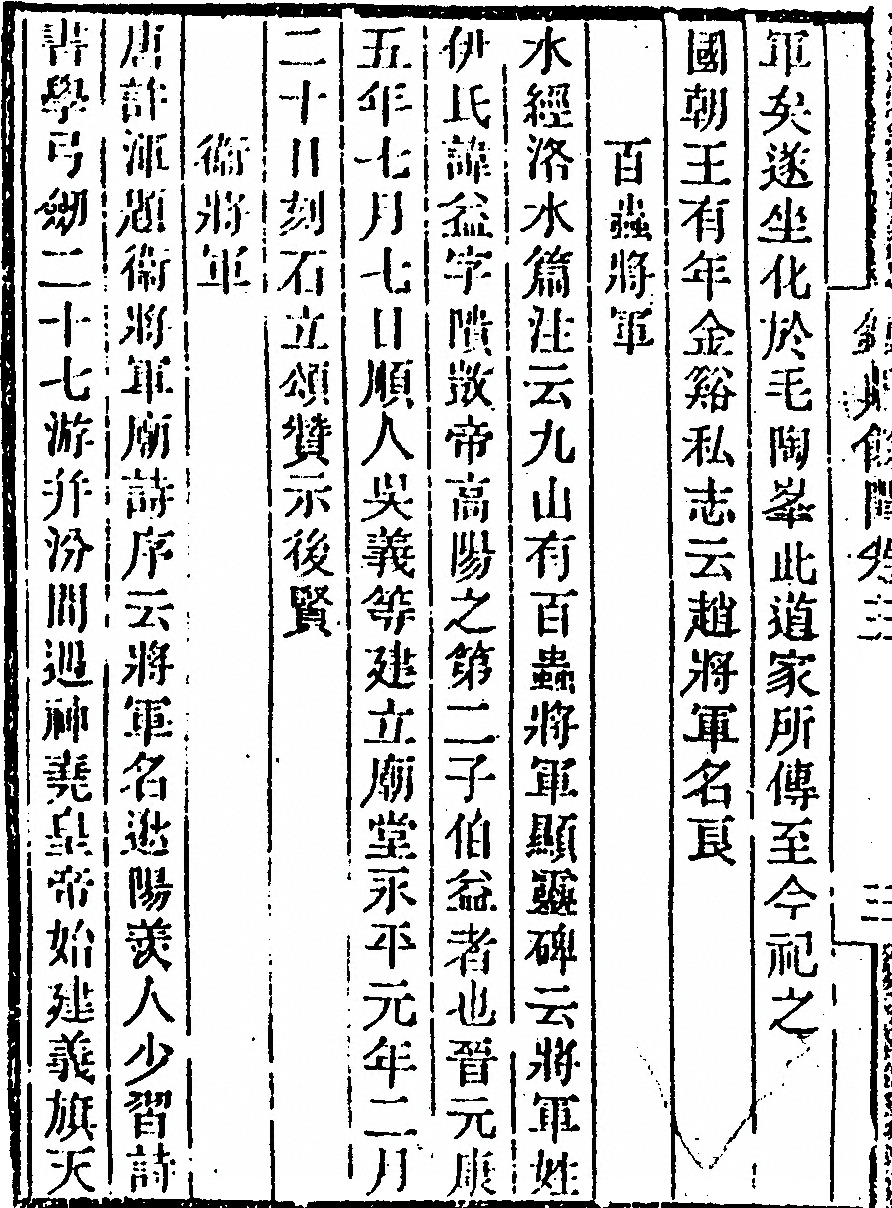 軍矣遂坐化於毛陶峯此道家所傳至今祀之
國朝王有年金谿私志云趙將軍名良
百蟲將軍
水經洛水篇注云九山有百蟲將軍顯靈碑云將軍姓
伊氏諱益字隤敳帝高陽之第二子伯益者也晉元康
五年七月七日順人吳義等建立廟堂永平元年二月
二十日刻石立頌贊示後賢
衞將軍
唐許渾題衞將軍廟詩序云將軍名逖陽羨人少習詩
書學弓劒二十七游幷汾間遇神堯皇帝始建義旗天